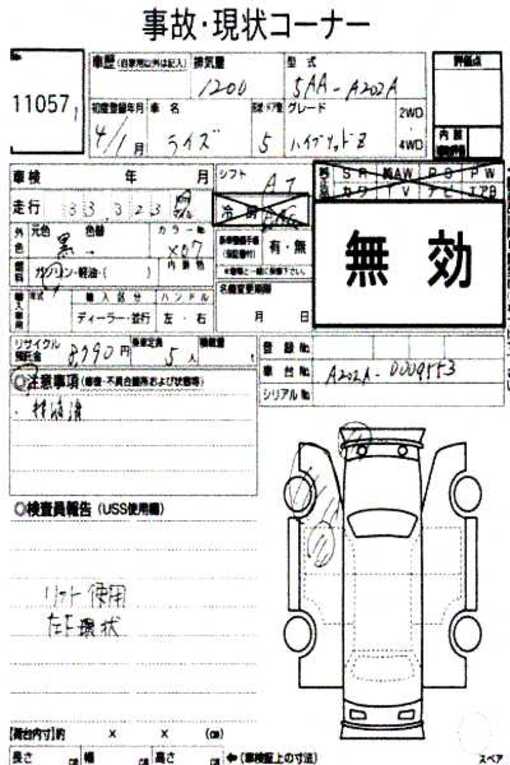 事故・現状コーナー
No.
11057
車歴(自家用以外は記入) 排気量 型式 評価点
1200 5AA-A202A
初度登録年月 車名 形状・ドア数 グレード 2WD
4/1月 ライズ 5 ハイブリッドZ 4WD
内装
車検 年 月 シフト AT SR 純AW PS PW
走行 33,323 冷房 AAC カワ TV ナビ エアB
外色 元色 黒 色替 カラーNo. X07 有・無
無効
燃料 ガソリン・軽油・( ) 内装色
名義変更期限
月 日
輸入車用 年式 輸入区分 ハンドル
ディーラー・並行 左・右
リサイクル預託金 8,790円 乗車定員 5人 積載量 t
登録No.
車台No. A202A-0009553
シリアルNo.
◎注意事項(修復・不具合箇所および状態等)
◎検査員報告(USS使用欄)
リフト使用
左F現状
【荷台内寸】約 × × (cm)
長さ cm 幅 cm 高さ cm ←(車検証上の寸法)
スペア